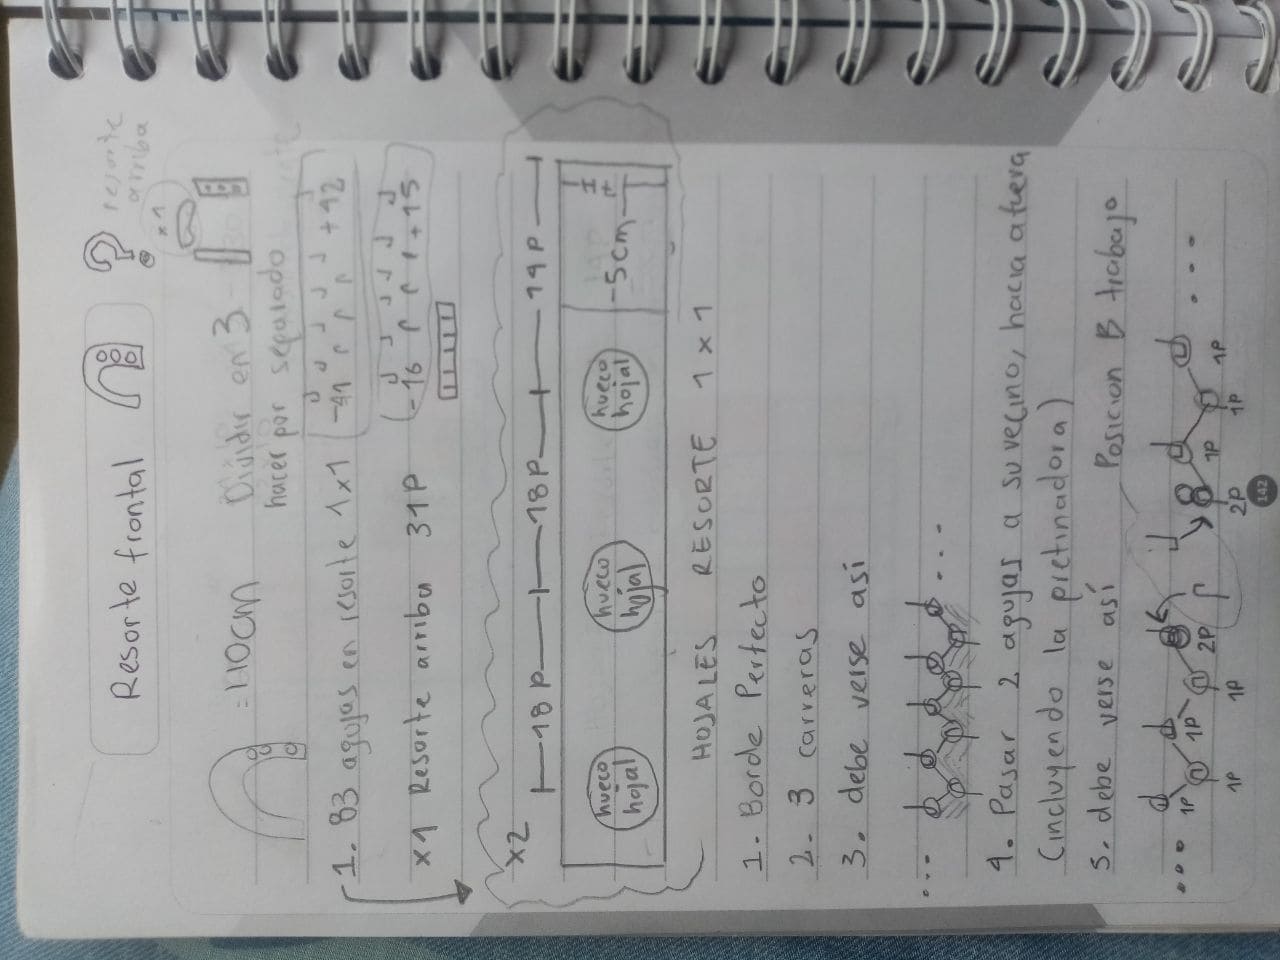 Resorte frontal
resorte
arriba
x1
= 110cm
Dividir en 3
hacer por separado
1. 83 agujas en resorte 1x1
-41 +42
x1 Resorte arriba 31P
-16 +15
x2
18P 18P 18P 19P
hueco
hojal
hueco
hojal
hueco
hojal
-5cm-
HOJALES RESORTE 1x1
1. Borde Perfecto
2. 3 carreras
3. debe verse así
... ...
4. Pasar 2 agujas a su vecino, hacia afuera
(incluyendo la pretinadora)
5. debe verse así
Posicion B trabajo
... 1P 1P 1P 1P 2P 2P 1P 1P 1P ...
142